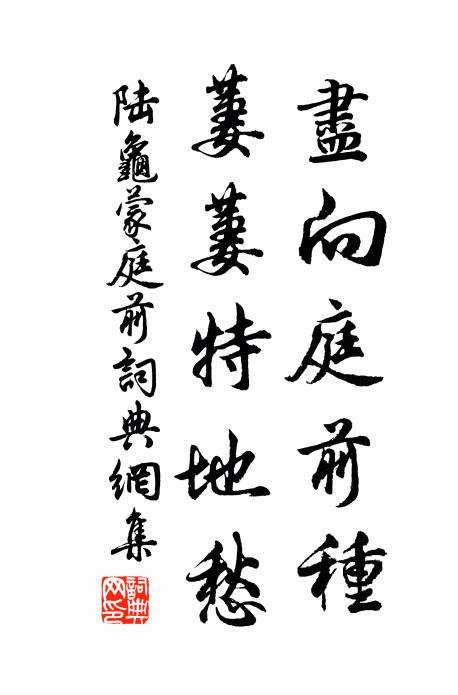 盡向庭前種
萋萋特地愁
陸龜蒙庭前詞典網集